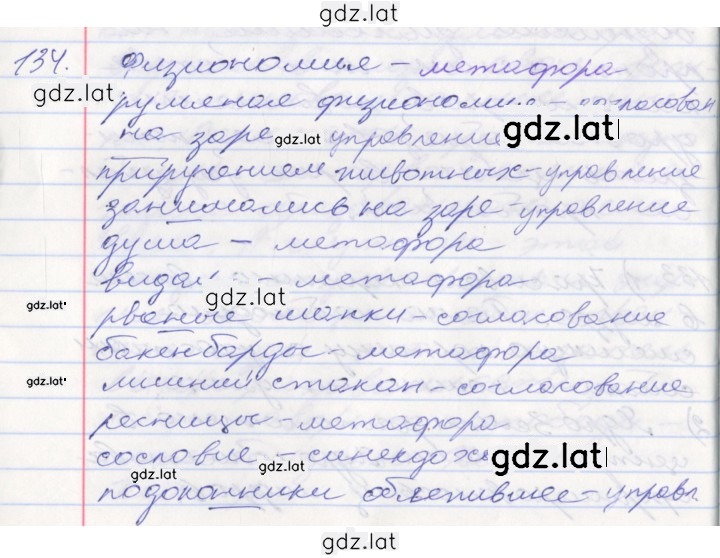 gdz.lat
134. Физиономия – метафора
gdz.lat
румяная физиономия – согласован
на заре управление gdz.lat
приручением животных – управление
занимались на заре – управление
душа – метафора
– метафора
gdz.lat gdz.lat
рваные шапки – согласование
бакенбарды – метафора
gdz.lat лишний стакан – согласование
ресницы – метафора
сословие – синекдоха gdz.lat
gdz.lat gdz.lat
подоконники облепившее – управл
gdz.lat